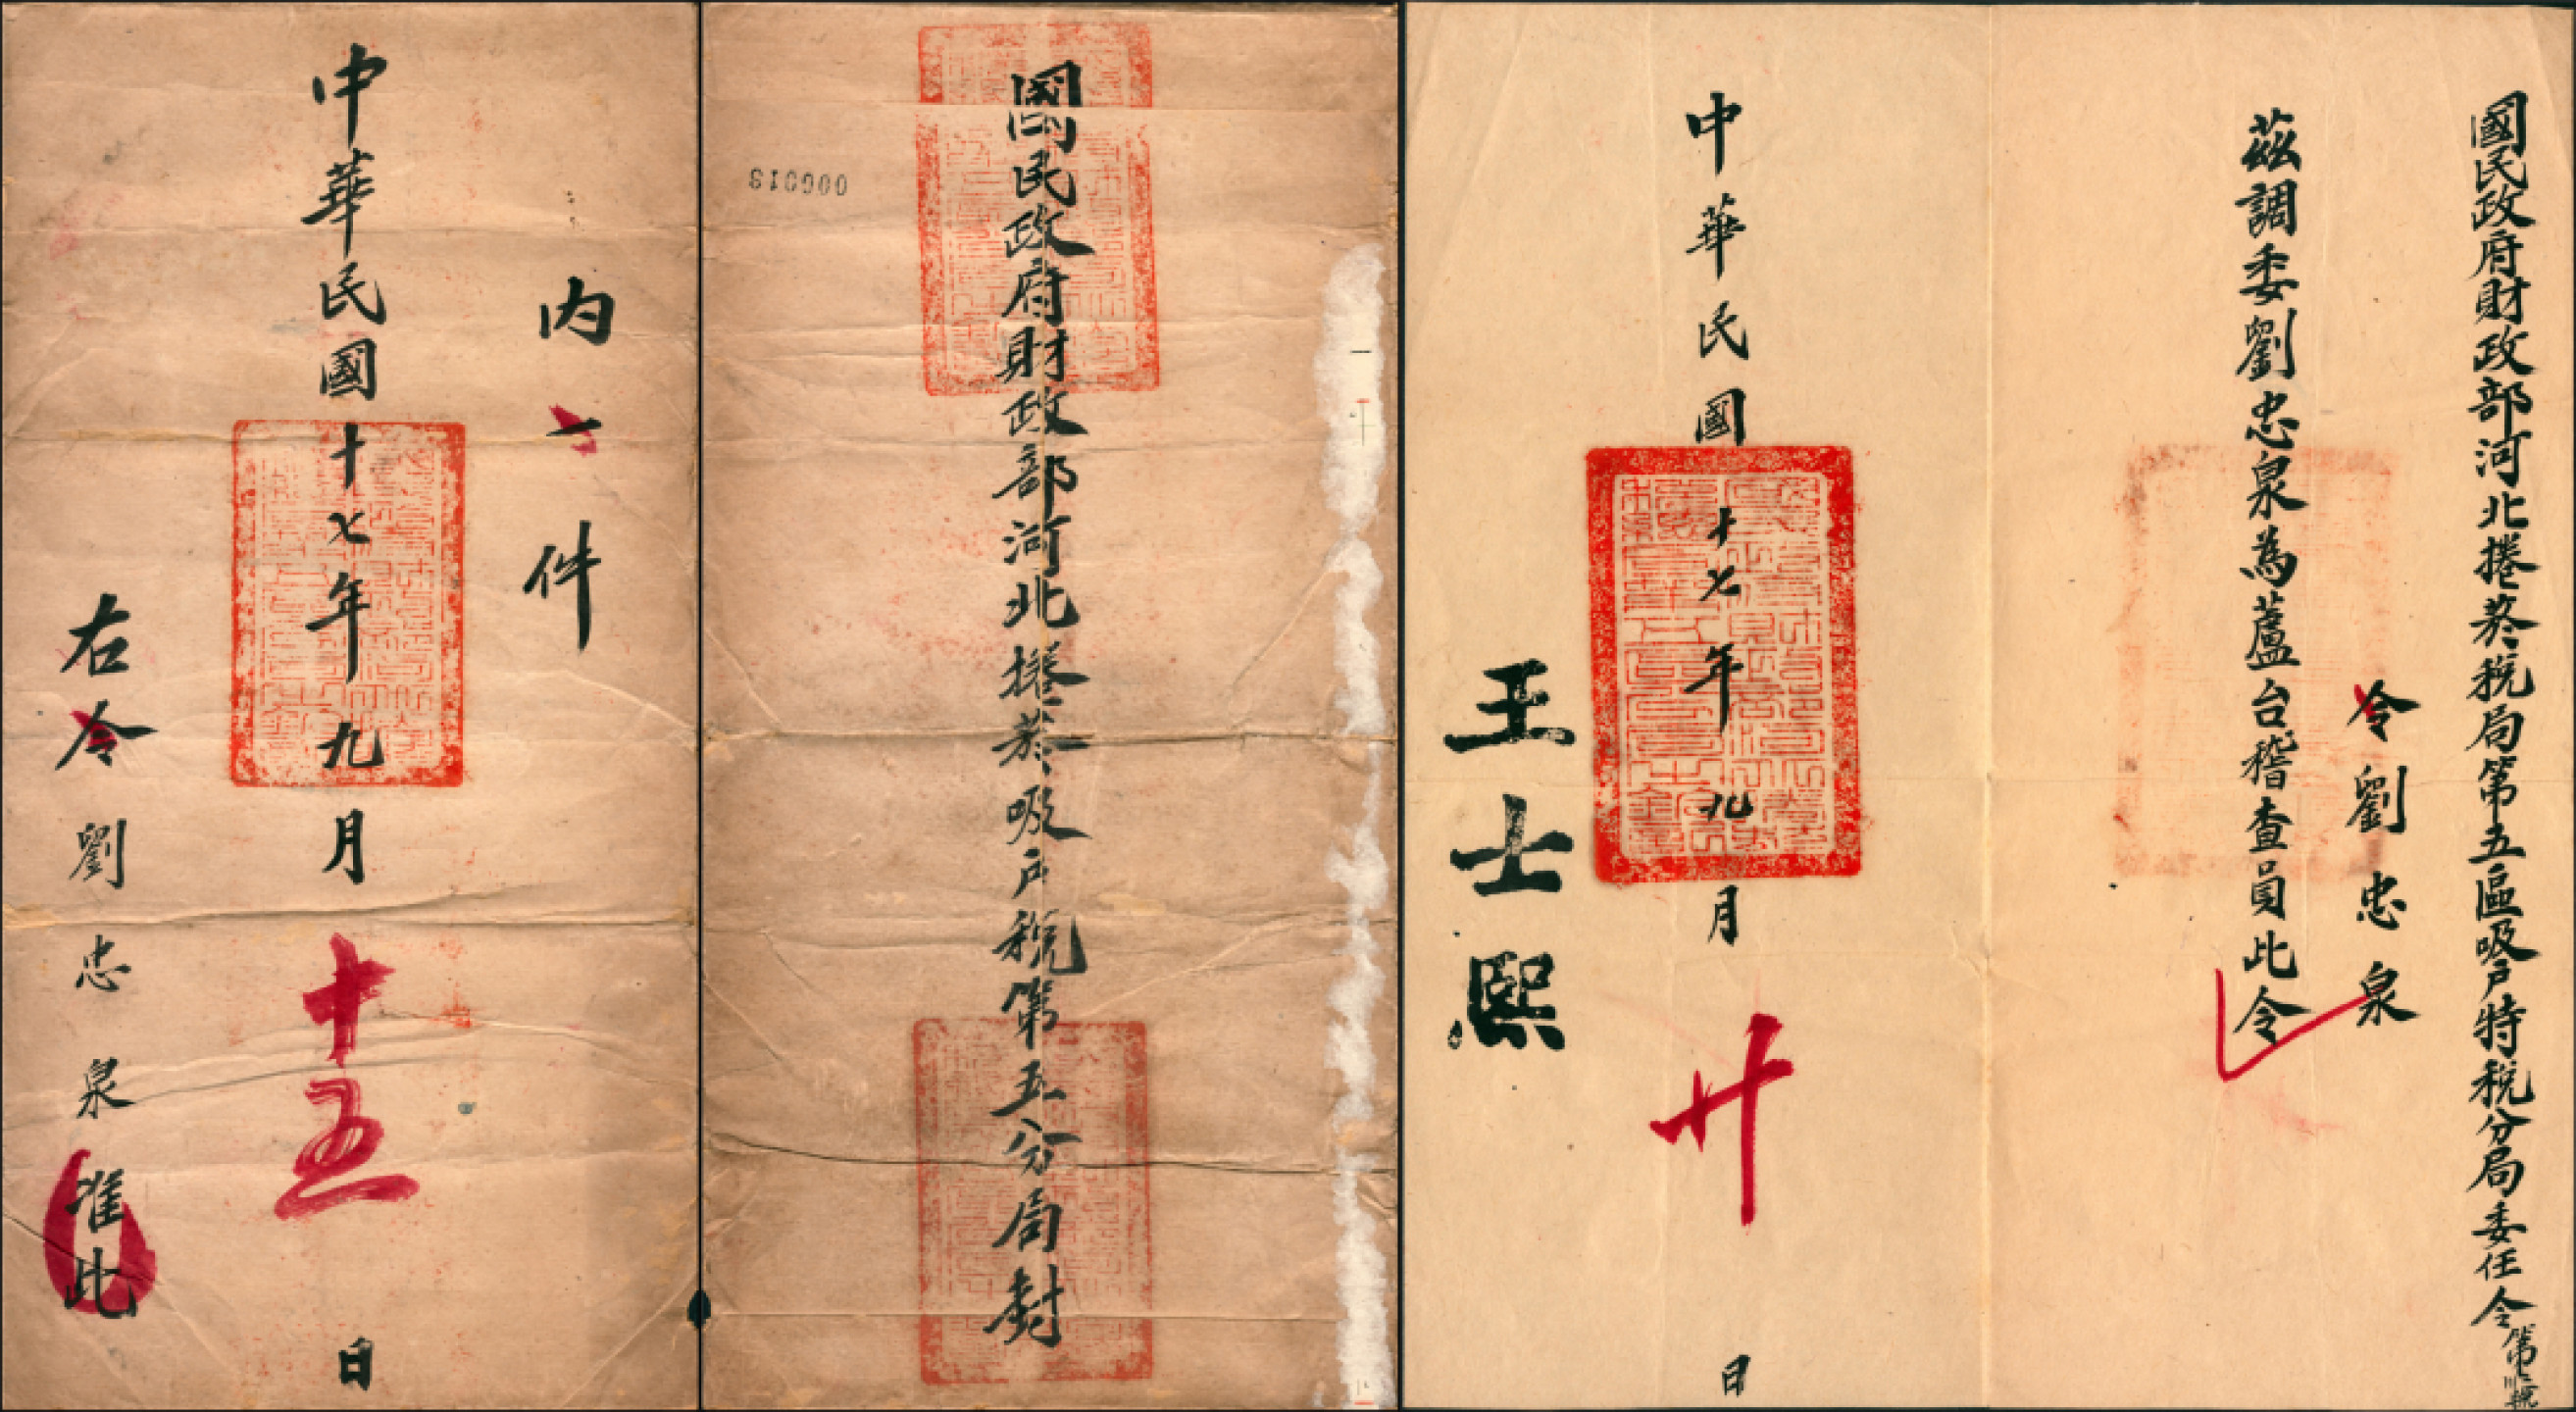 國民政府財政部河北捲菸稅局第五區吸户特稅分局委任令
令劉忠泉
茲調委劉忠泉為蘆台稽查員此令
中華民國十七年九月廿日
王士熙
000013
國民政府財政部河北捲菸吸户稅第五分局封
内一件
中華民國十七年九月十五日
右令劉忠泉准此